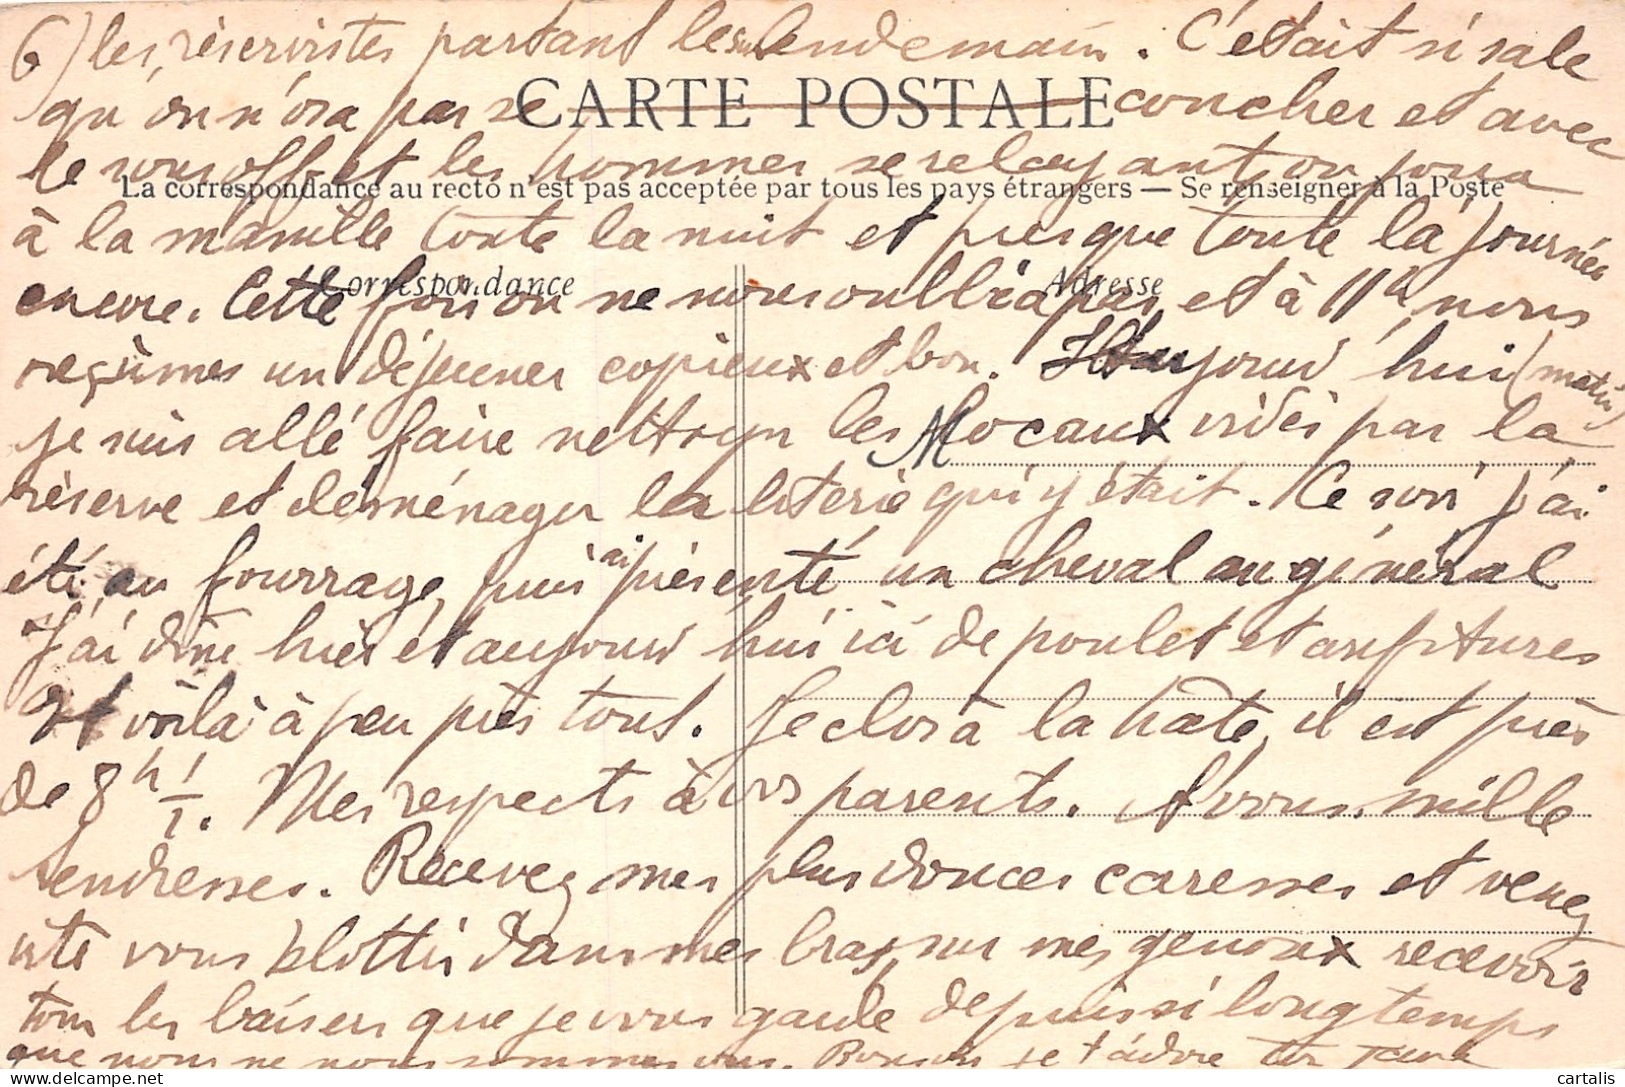 6) les réservistes partant le lendemain. C'était si sale
CARTE POSTALE
qu'on n'osa pas se coucher et avec
le sous off et les hommes se relayant on joua
La correspondance au recto n'est pas acceptée par tous les pays étrangers — Se renseigner à la Poste
à la manille toute la nuit et presque toute la journée
Correspondance
Adresse
encore. Cette fois on ne nous oublia pas, et à 11h, nous
reçûmes un déjeuner copieux et bon. Aujourd'hui (matin)
je suis allé faire nettoyer les locaux vidés par la
réserve et déménager la literie qui y était. Ce soir j'ai
été au fourrage, puis ai présenté un cheval au général
J'ai dîné hier et aujourd'hui ici de poulet et confitures
Et voilà à peu près tout. Je clos à la hâte, il est près
de 8h 1/2. Mes respects à vos parents. A vous, mille
tendresses. Recevez mes plus douces caresses et venez
vite vous blottir dans mes bras, sur mes genoux recevoir
tous les baisers que je vous garde depuis si longtemps
que nous ne nous sommes vus. Bonsoir je t'adore ton
cartalis